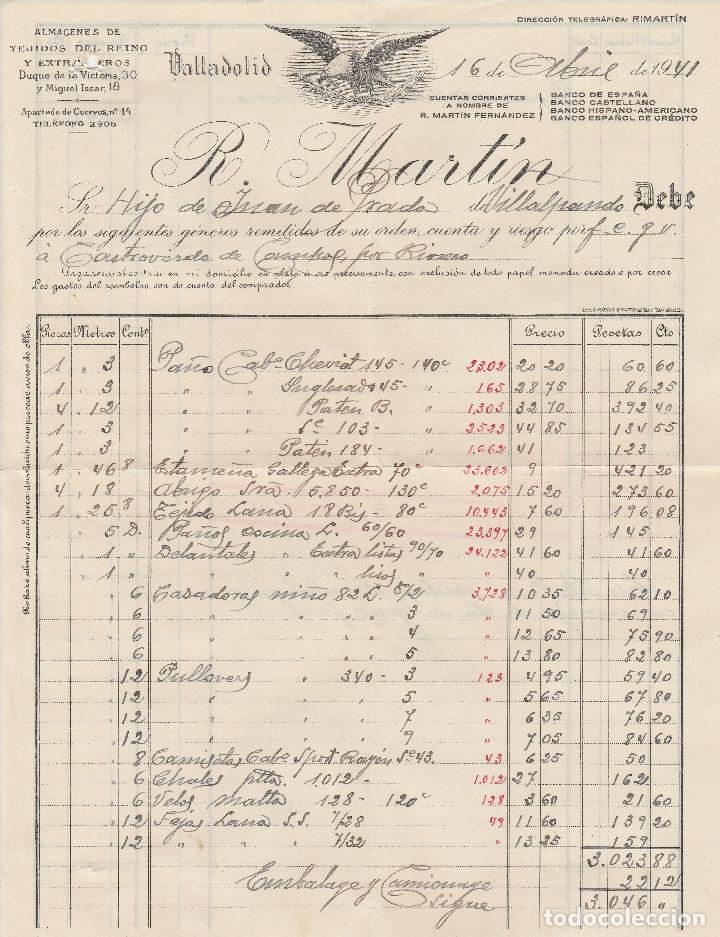 DIRECCIÓN TELEGRÁFICA: RIMARTÍN
ALMACENES DE
TEJIDOS DEL REINO
Y EXTRANJEROS
Duque de la Victoria, 30
y Miguel Iscar, 18
Apartado de Correos, nº 14
TELÉFONO 2906
Valladolid 16 de Abril de 1941
CUENTAS CORRIENTES
A NOMBRE DE
R. MARTÍN FERNÁNDEZ
BANCO DE ESPAÑA
BANCO CASTELLANO
BANCO HISPANO-AMERICANO
BANCO ESPAÑOL DE CRÉDITO
R. Martín
Sr. Hijo de Juan de Prada Villalpando Debe
por los siguientes géneros remitidos de su orden, cuenta y riesgo por f. c. g. v.
á Castroverde de Campos, por Rioseco
Pagadero al contado en mi domicilio en plata u oro precisamente con exclusión de todo papel moneda creado ó por crear
Los gastos del reembolso son de cuenta del comprador
No hará abono de cualquiera devolución si no precede aviso de ella.
Piezas Metros Conts Precio Pesetas Cts
1 " 3 Paño Cabº Cheviot 145- 140c 2302 20 20 60 60
1 " 3 " Inglesado 45- " 165 28 75 86 25
4 " 12 " Paten B. " 1,303 32 70 392 40
1 " 3 " Sc 103- " 2523 44 85 134 55
1 " 3 " Paten 184- " 1,662 41 123
1 " 46 8 Estameña Gallega Extra 70c 23,602 9 421 20
4 " 18 Abrigo Sra. 5,850- 130c 2,075 15 20 273 60
1 " 25 8 Tejido Lana 18 Bis- 80c 10,443 7 60 196 08
" 5 D. Paños cocina L. 60/60 23,397 29 145
" 1 " Delantales " Extra listas 90/70 24,122 41 60 41 60
" 1 " " " " lisos " " 40 40
" 6 Cazadoras niño 82 L. E/2 3,728 10 35 62 10
" 6 " " " 3 " 11 50 69
" 6 " " " 4 " 12 65 75 90
" 6 " " " 5 " 13 80 82 80
" 12 Pullovers 340- 3 123 4 95 59 40
" 12 " 5 " 5 65 67 80
" 12 " 7 " 6 35 76 20
" 12 " 9 " 7 05 84 60
" 8 Camisetas Cabº Sport Rayón Sc 43. 43 6 25 50
" 6 Chales ptta. 1.012- 1.012 27 162
" 6 Velos malta 128- 120c 128 3 60 21 60
" 12 Fajas Lana S.S. 7/28 49 11 60 139 20
" 12 " " " 7/32 " 13 25 159
3.023 88
Embalage y Camionage 22 12
sigue 3.046 "
todocoleccion